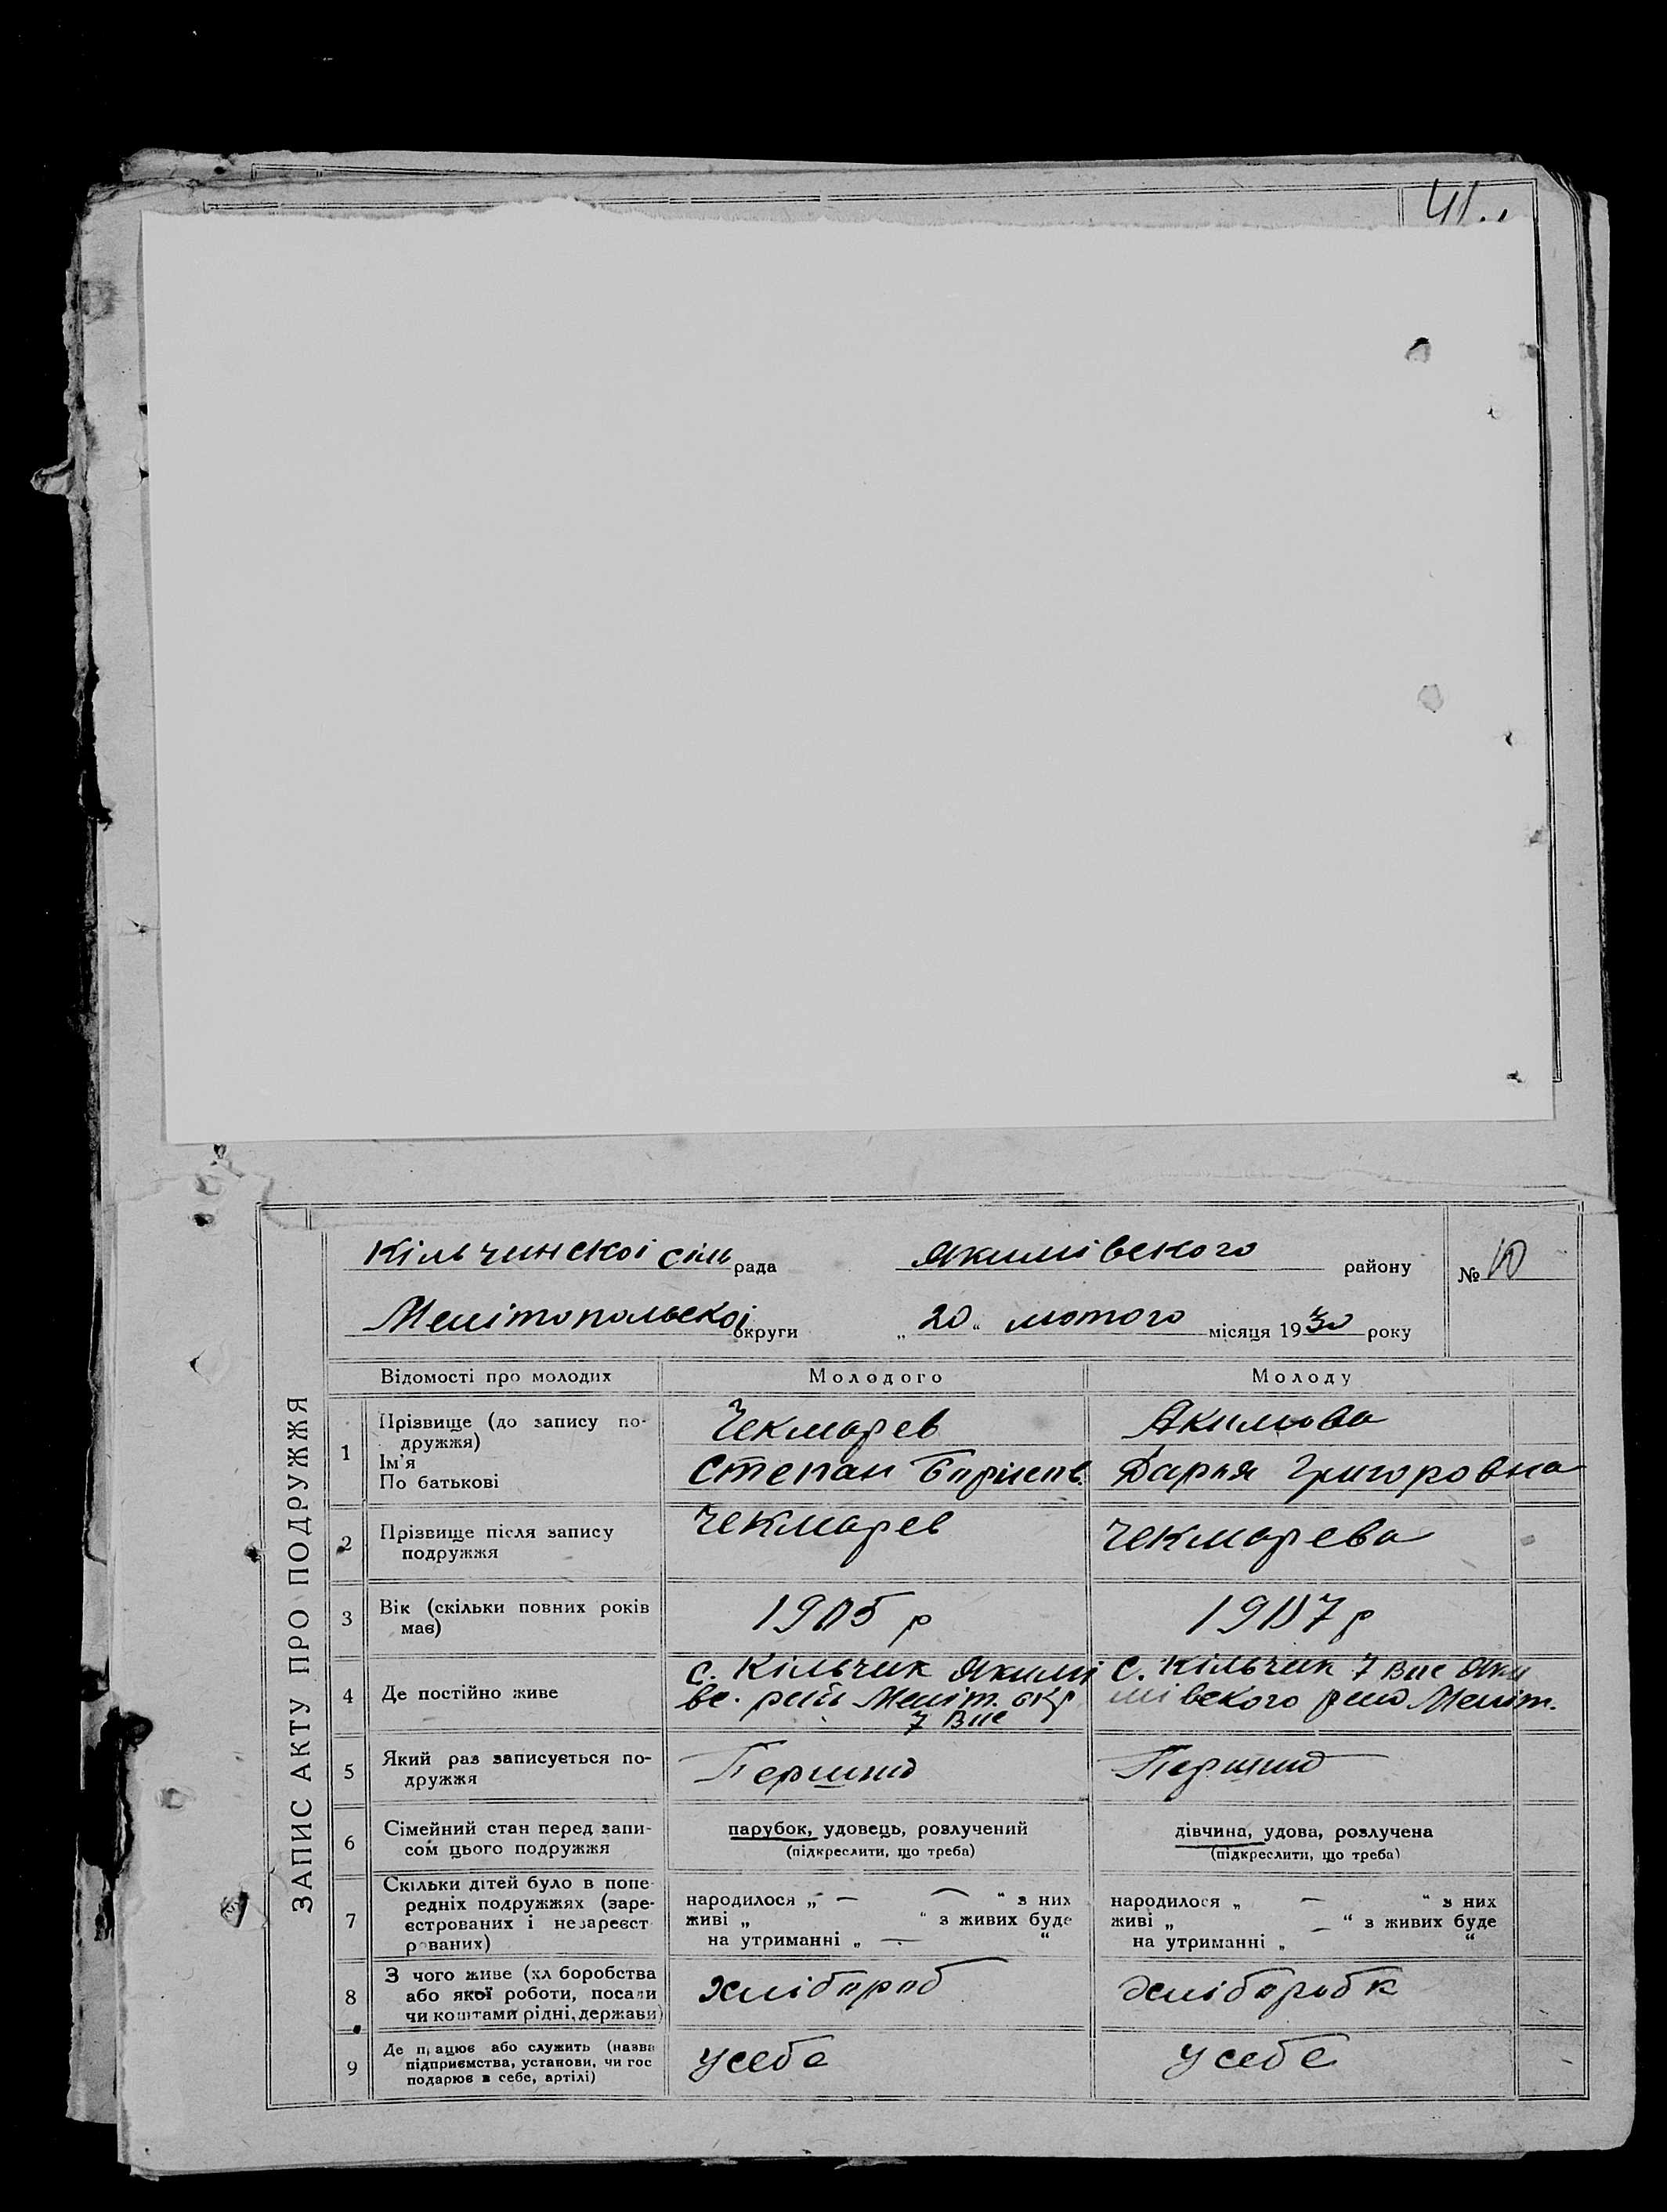 41..
ЗАПИС АКТУ ПРО ПОДРУЖЖЯ
Кільчинскоі сіль рада Якимівского району № 10
Мелітопольскоі округи „ 20 “ лютого місяця 1930 року
Відомості про молодих Молодого Молоду
1 Прізвище (до запису по-
дружжя)
Ім'я
По батькові
Чекмарев
Степан
Акимова
Дарья Григоровна
2 Прізвище після запису
подружжя
Чекмарев
Чекмарева
3 Вік (скільки повних років
має)
1905 р
1907 р
4 Де постійно живе
с. Кільчик Якимі
вс. рай Меліт. окр
с. Кільчик Яки
мівского Меліт.
5 Який раз записується по-
дружжя
6 Сімейний стан перед запи-
сом цього подружжя
парубок, удовець, розлучений
(підкреслити, що треба)
дівчина, удова, розлучена
(підкреслити, що треба)
7 Скільки дітей було в попе-
редніх подружжях (заре-
єстрованих і незареєст
рованих)
народилося „ — — “ з них
живі „ “ з живих буде
на утриманні „ — “
народилося „ — “ з них
живі „ — “ з живих буде
на утриманні „ “
8 З чого живе (хл боробства
або якої роботи, посади
чи коштами рідні, держави)
Хлібороб
Хлібороbк
9 Де працює або служить (назва
підприємства, установи, чи гос
подарює в себе, артілі)
усебе
усебе